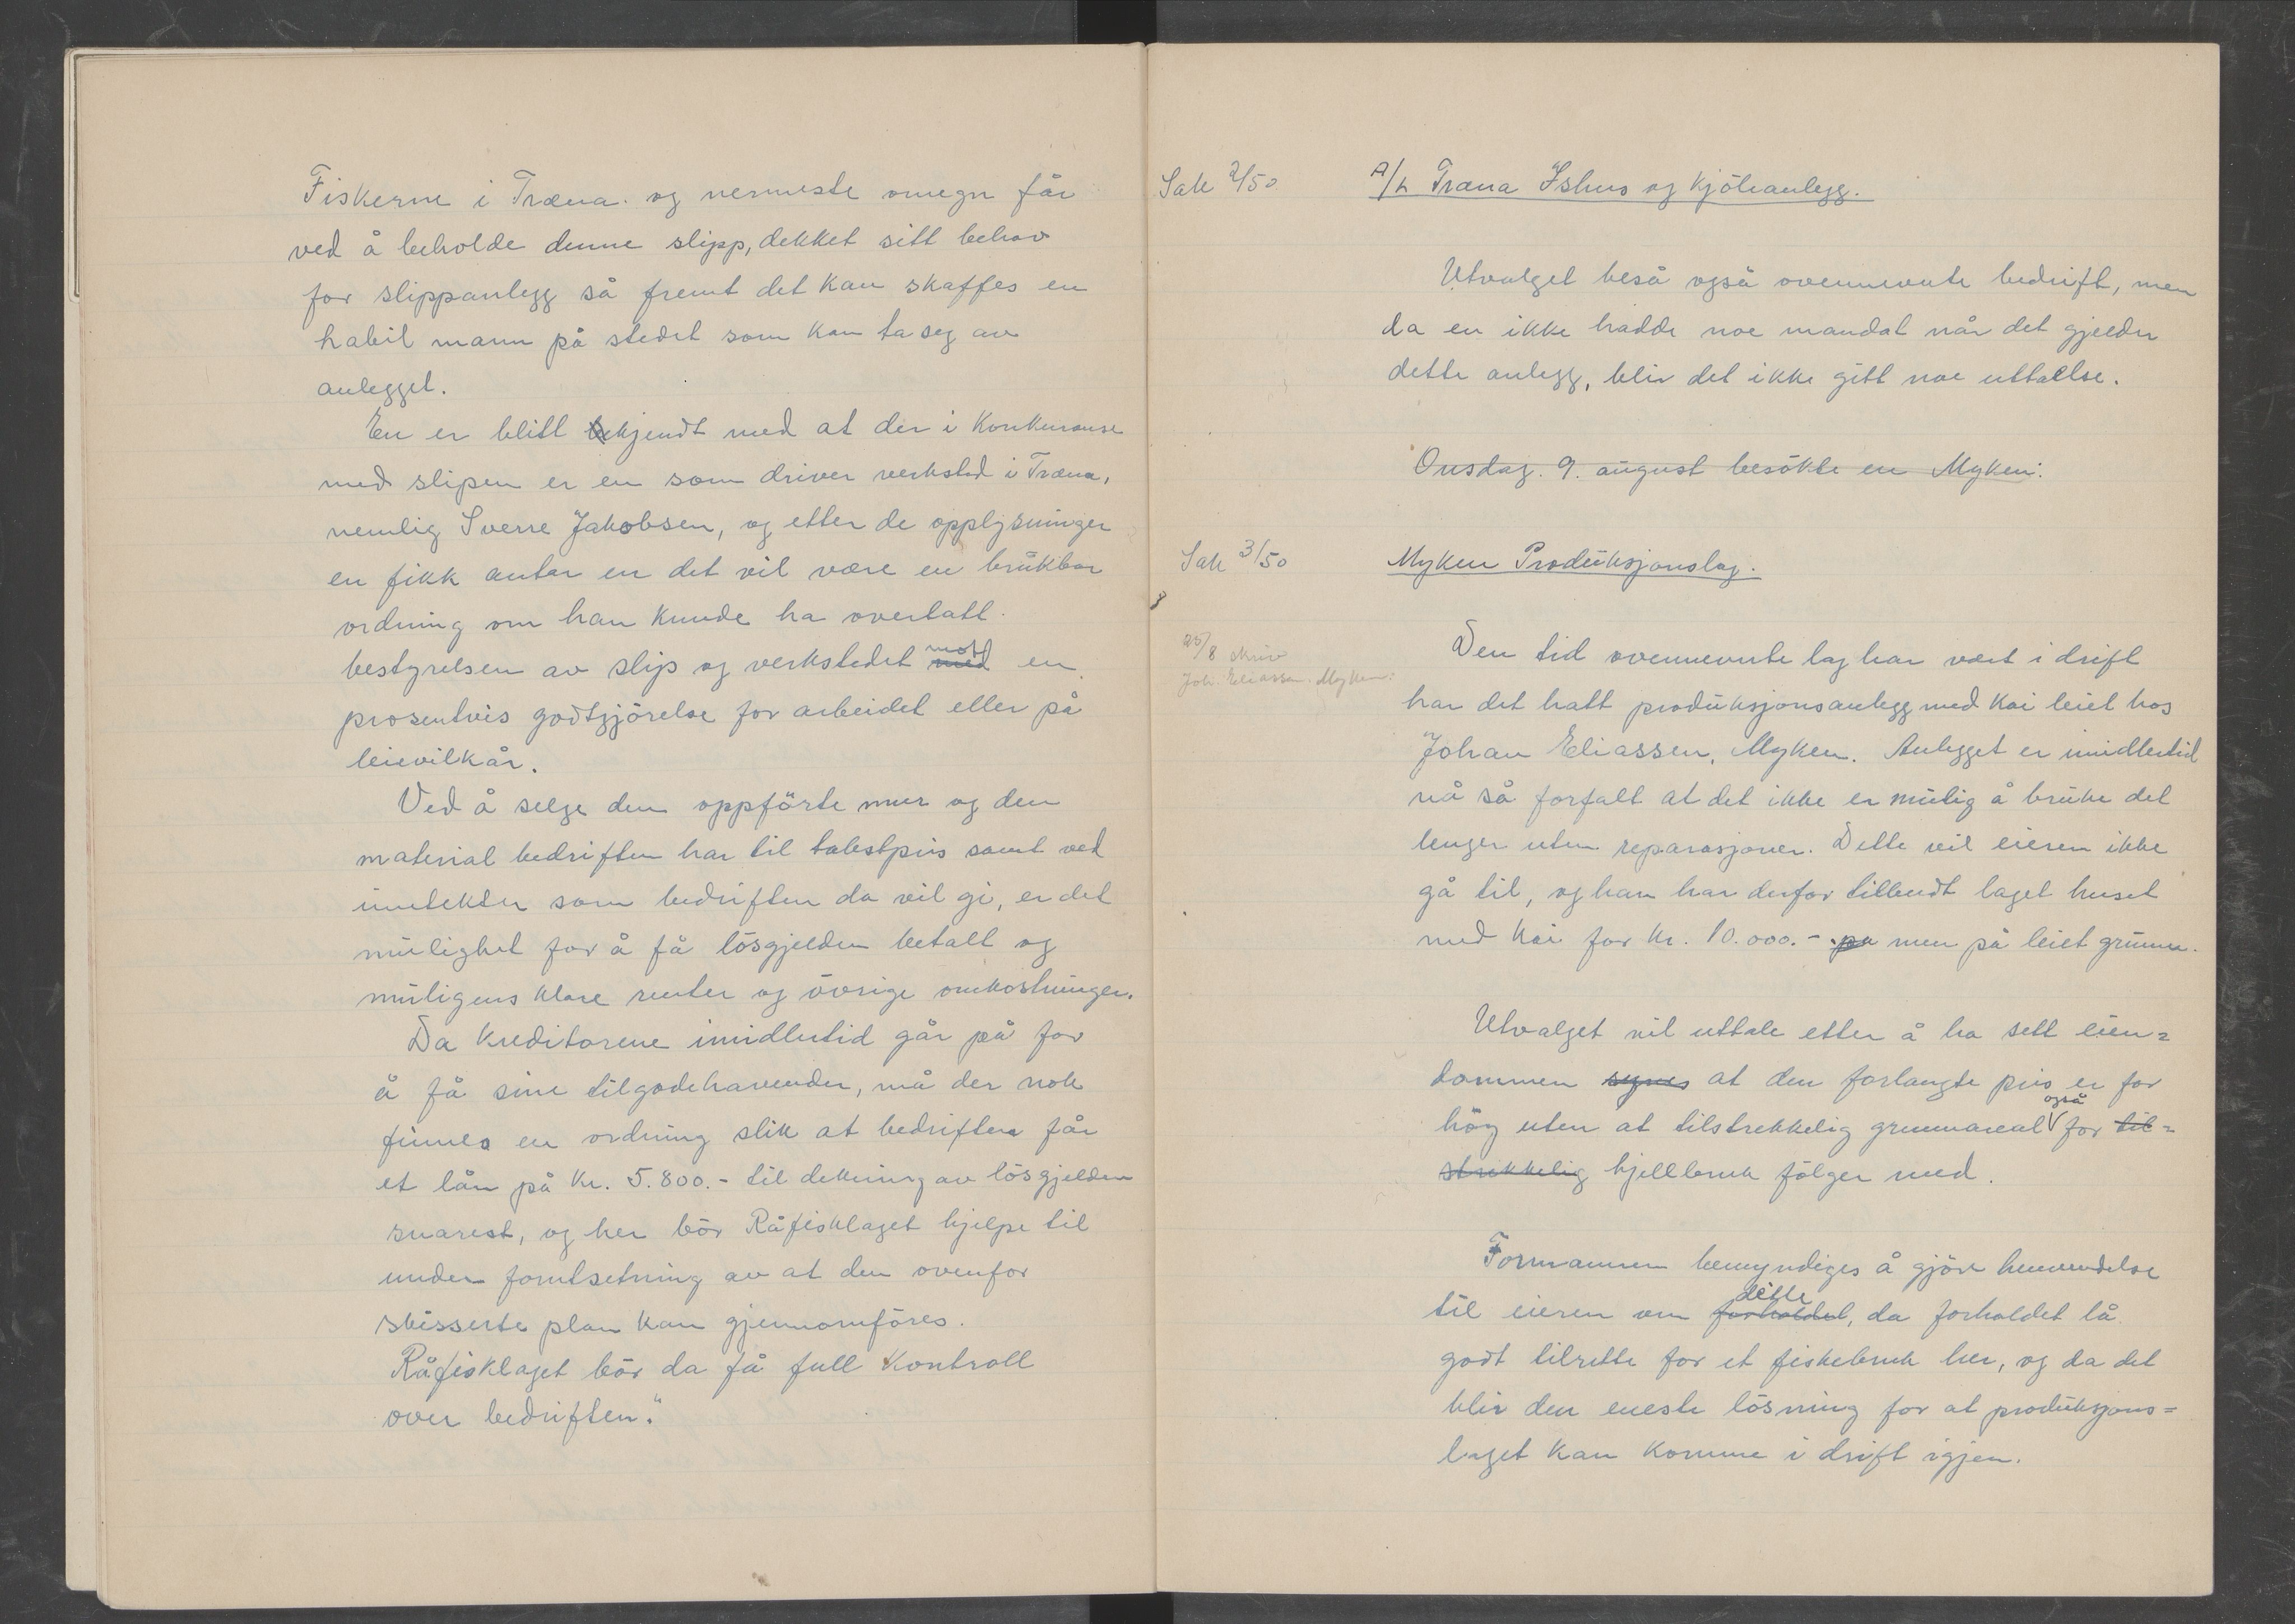 Fiskerne i Træna og nermeste omegn får
ved å beholde denne slipp, dekket sitt behov
for slippanlegg så fremt det kan skaffes en
habil mann på stedet som kan ta seg av
anlegget.
En er blitt bekjendt med at der i konkuranse
med slipen er en som driver verksted i Træna,
nemlig Sverre Jakobsen, og etter de opplysninger
en fikk antar en det vil være en brukbar
ordning om han kunde ha overtatt
bestyrelsen av slip og verkstedet med mot en
prosentvis godtgjörelse for arbeidet eller på
leievilkår.
Ved å selge den oppförte mur og den
material bedriften har til takstpris samt ved
inntekter som bedriften da vil gi, er det
mulighet for å få lösgjelden betalt og
muligens klare renter og övrige omkostninger.
Da kreditorene imidlertid går på for
å få sine tilgodehavender, må der nok
finnes en ordning slik at bedriften får
et lån på kr. 5.800.- til dekning av lösgjelden
snarest, og her bör Råfisklaget hjelpe til
under forutsetning av at den ovenfor
skisserte plan kan gjennomföres.
Råfisklaget bör da få full kontroll
over bedriften."
Sak 2/50
A/L Træna Ishus og Kjöleanlegg.
Utvalget beså også ovennevnte bedrift, men
da en ikke hadde noe mandat når det gjelder
dette anlegg, blir det ikke gitt noe uttallse.
Onsdag. 9. august besökte en Myken:
Sak 3/50
Myken Produksjonslag.
25/8 skriv
Joh. Eliassen. Myken.
Den tid ovennevnte lag har vært i drift
har det hatt produksjonsanlegg med kai leiet hos
Johan Eliassen, Myken. Anlegget er imidlertid
nå så forfalt at det ikke er mulig å bruke det
lenger uten reparasjoner. Dette vil eieren ikke
gå til, og han har derfor tilbudt laget huset
med kai for kr. 10.000.- på men på leiet grunn.
Utvalget vil uttale etter å ha sett eien=
dommen synes at den forlangte pris er for
höy uten at tilstrekkelig grunnareal også for til=
strekkelig hjellbruk fölger med.
Formannen bemyndiges å gjöre henvendelse
til eieren om forholdet dette, da forholdet lå
godt tilrette for et fiskebruk her, og da det
blir den eneste lösning for at produksjons=
laget kan komme i drift igjen.